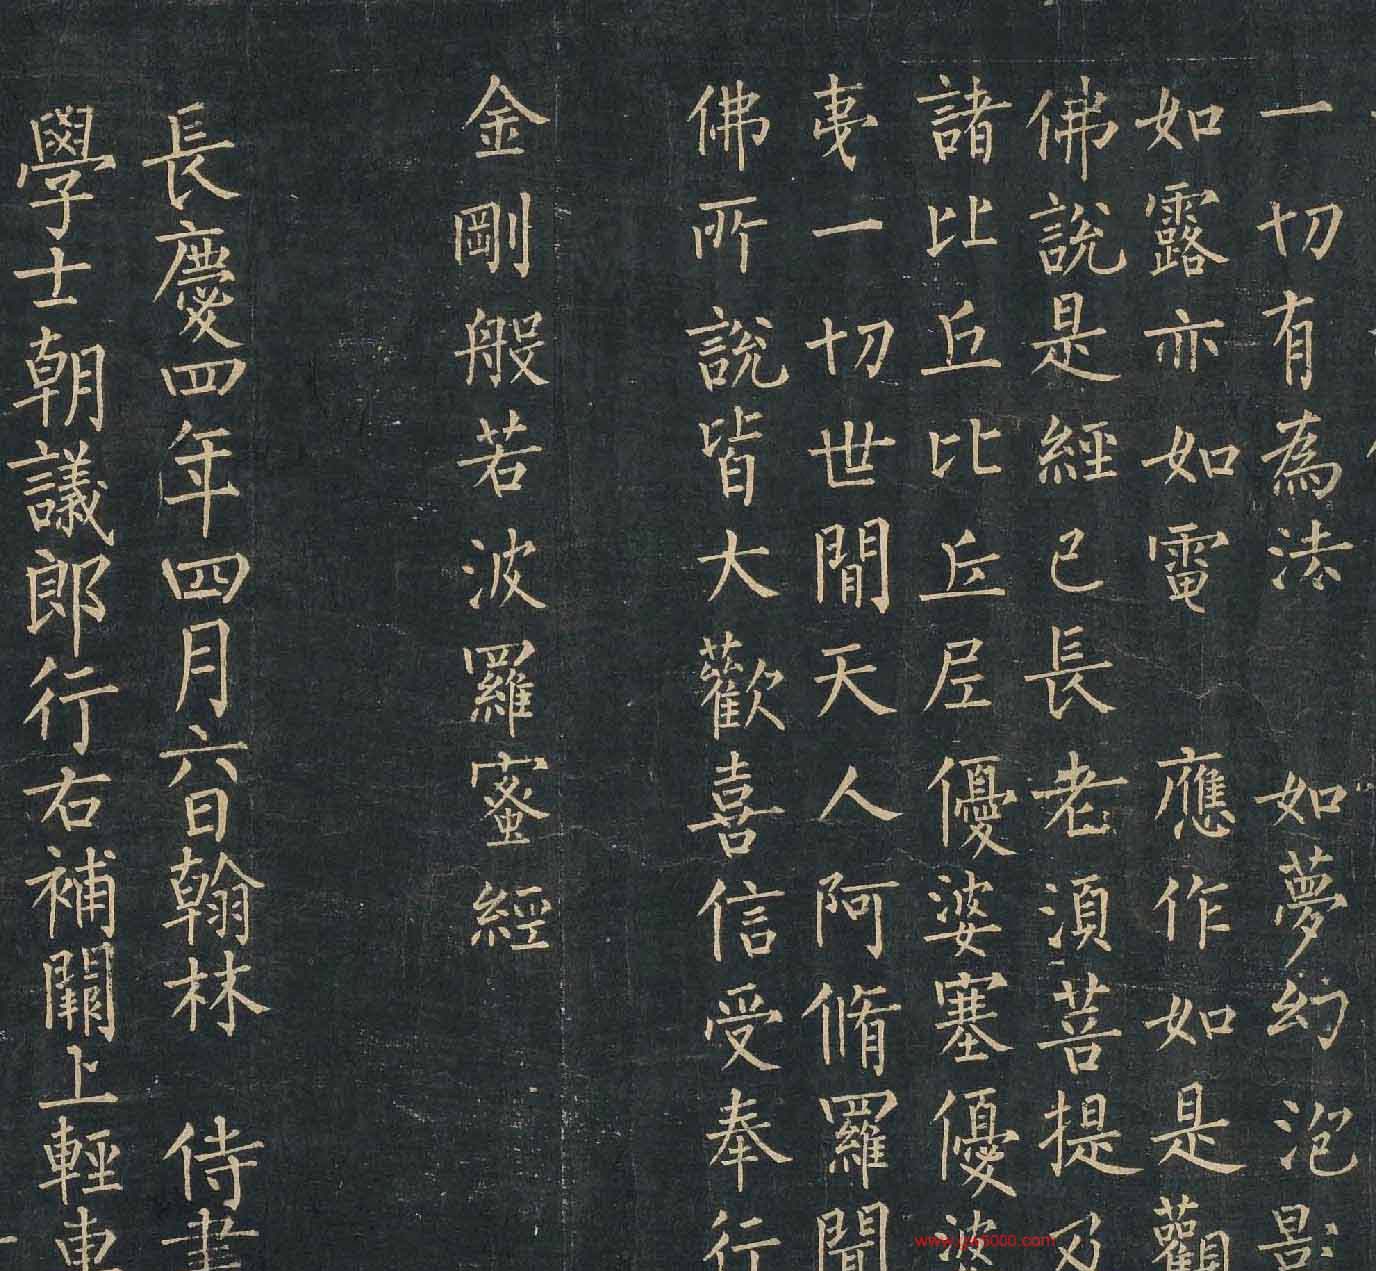 一切有為法 如夢幻泡影
如露亦如電 應作如是觀
佛說是經已長老湏菩提乃
諸比丘比丘尼優婆塞優婆
夷一切世間天人阿脩羅聞
佛所說皆大歡喜信受奉行
金剛般若波羅蜜經
長慶四年四月六日翰林 侍書
學士朝議郎行右補闕上輕車